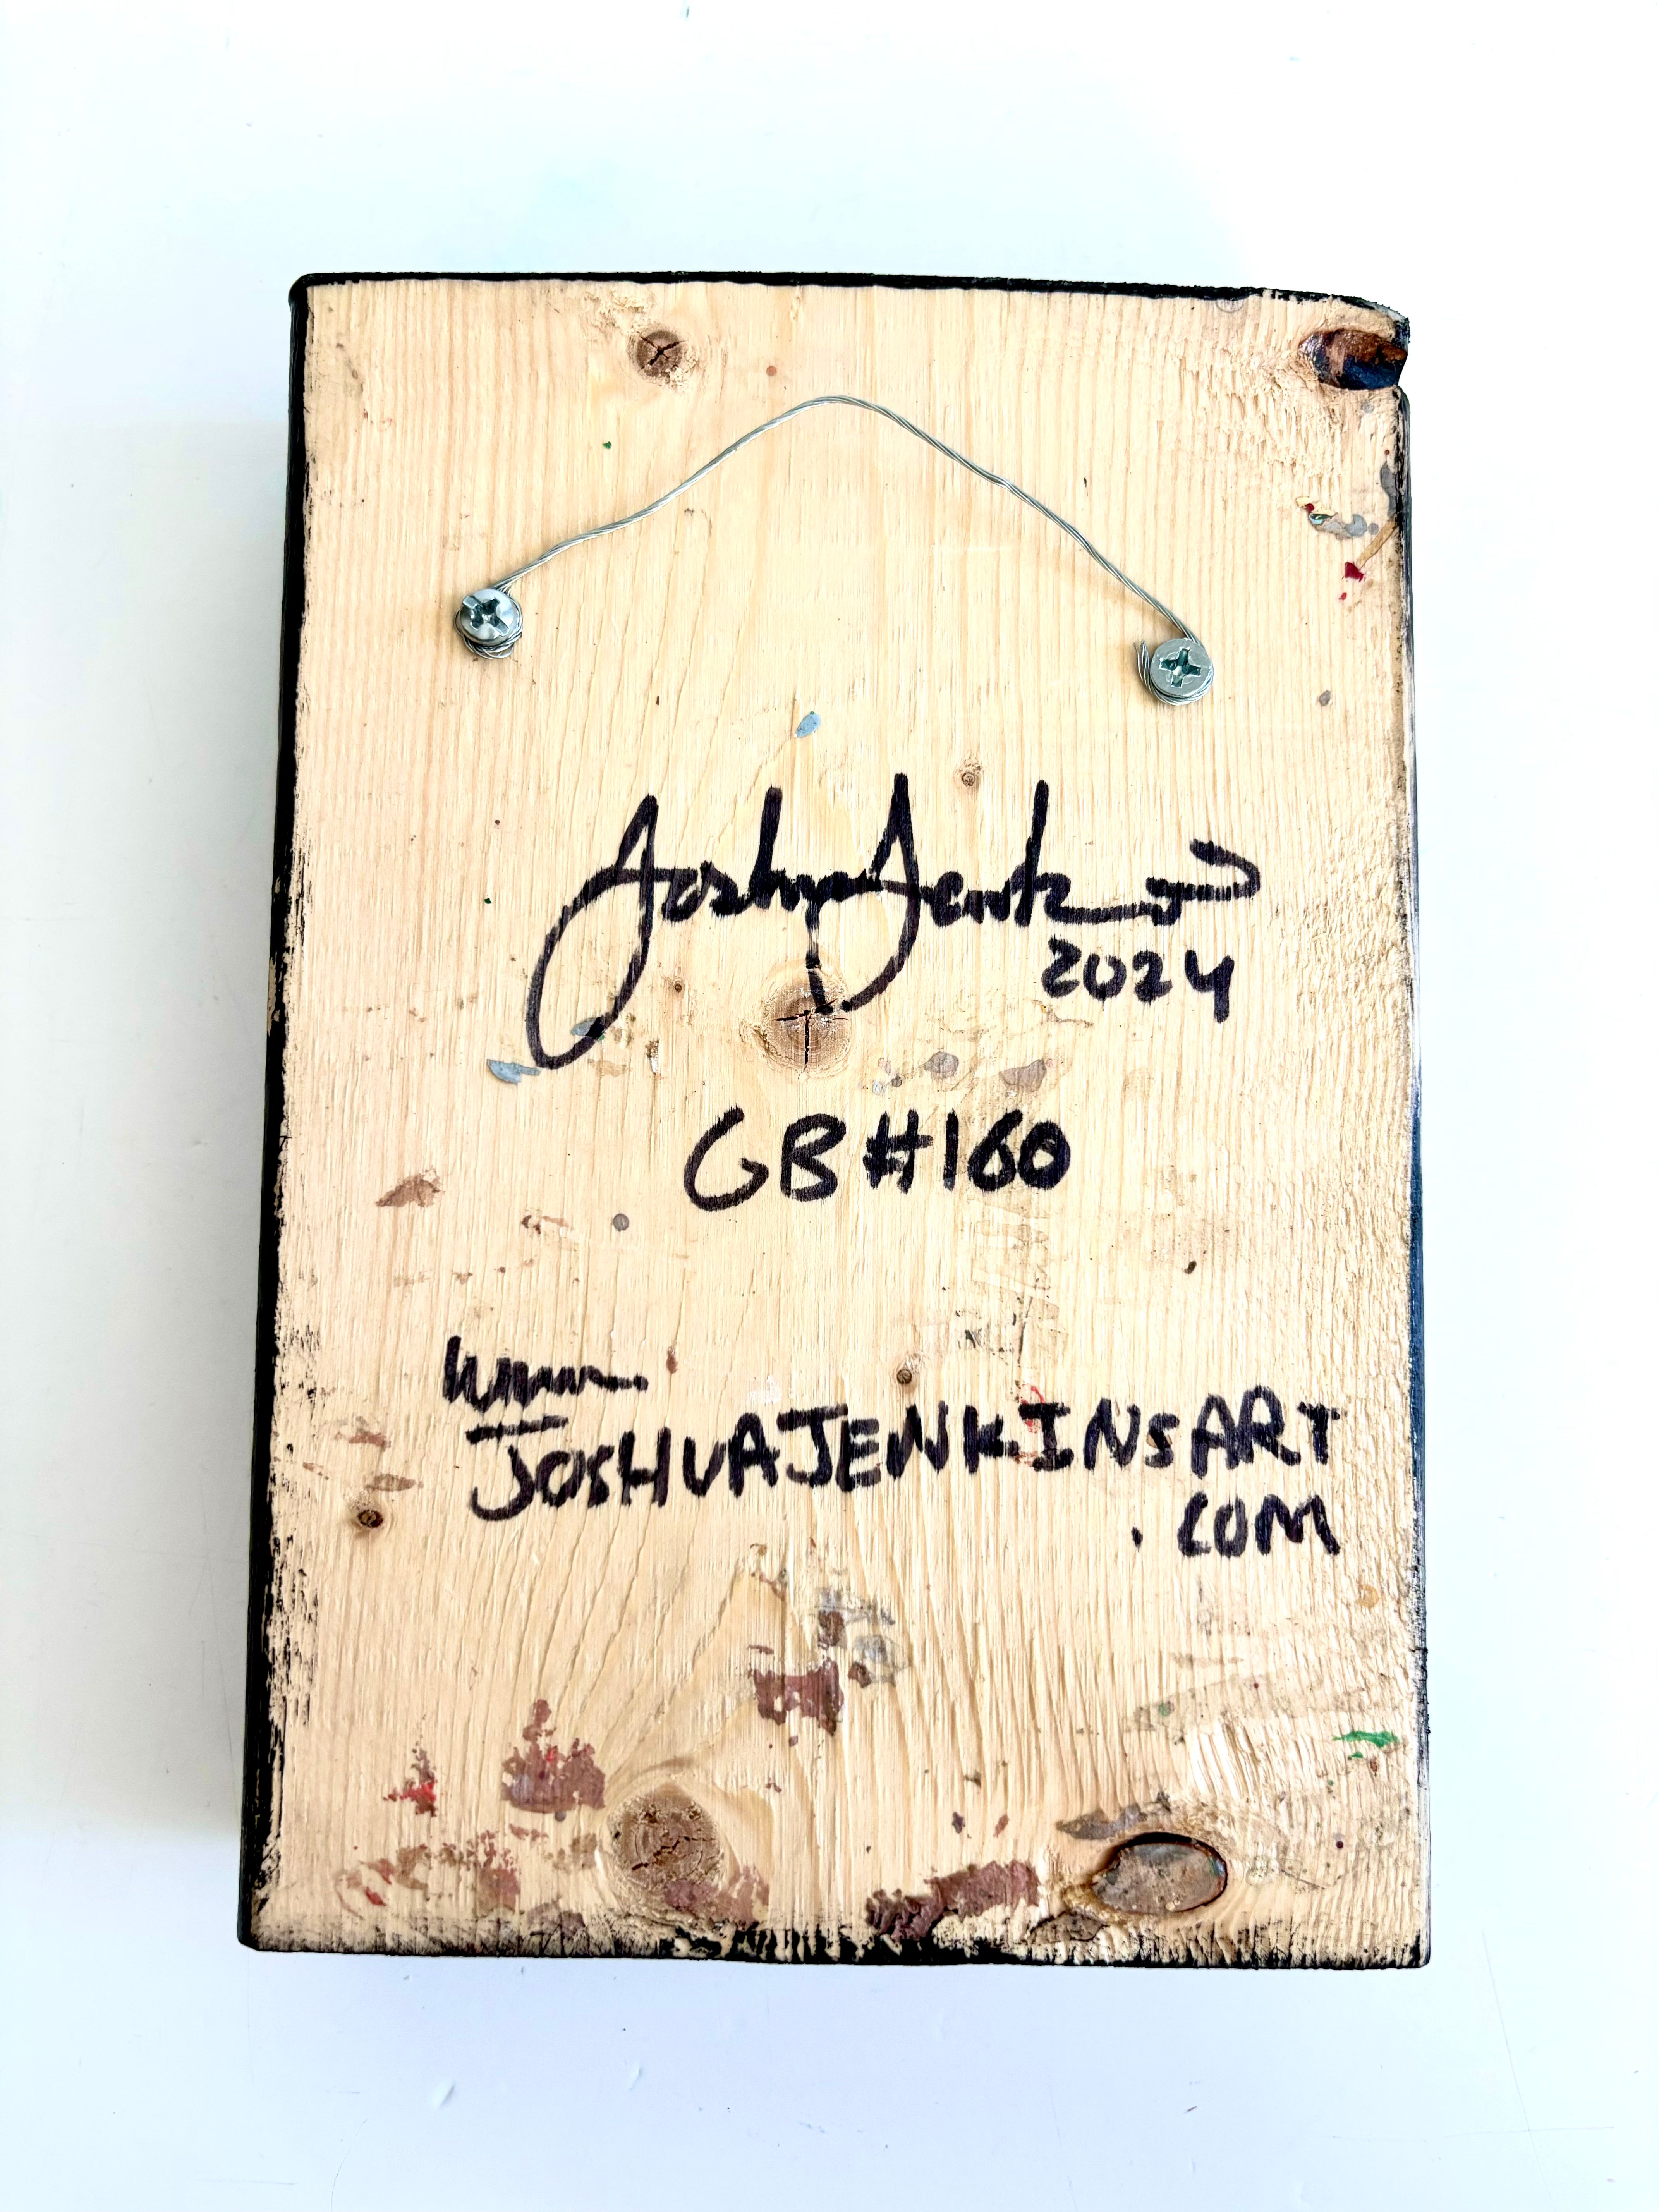 Joshua Jenkins
2024
GB#160
www.
JOSHUAJENKINSART
.COM